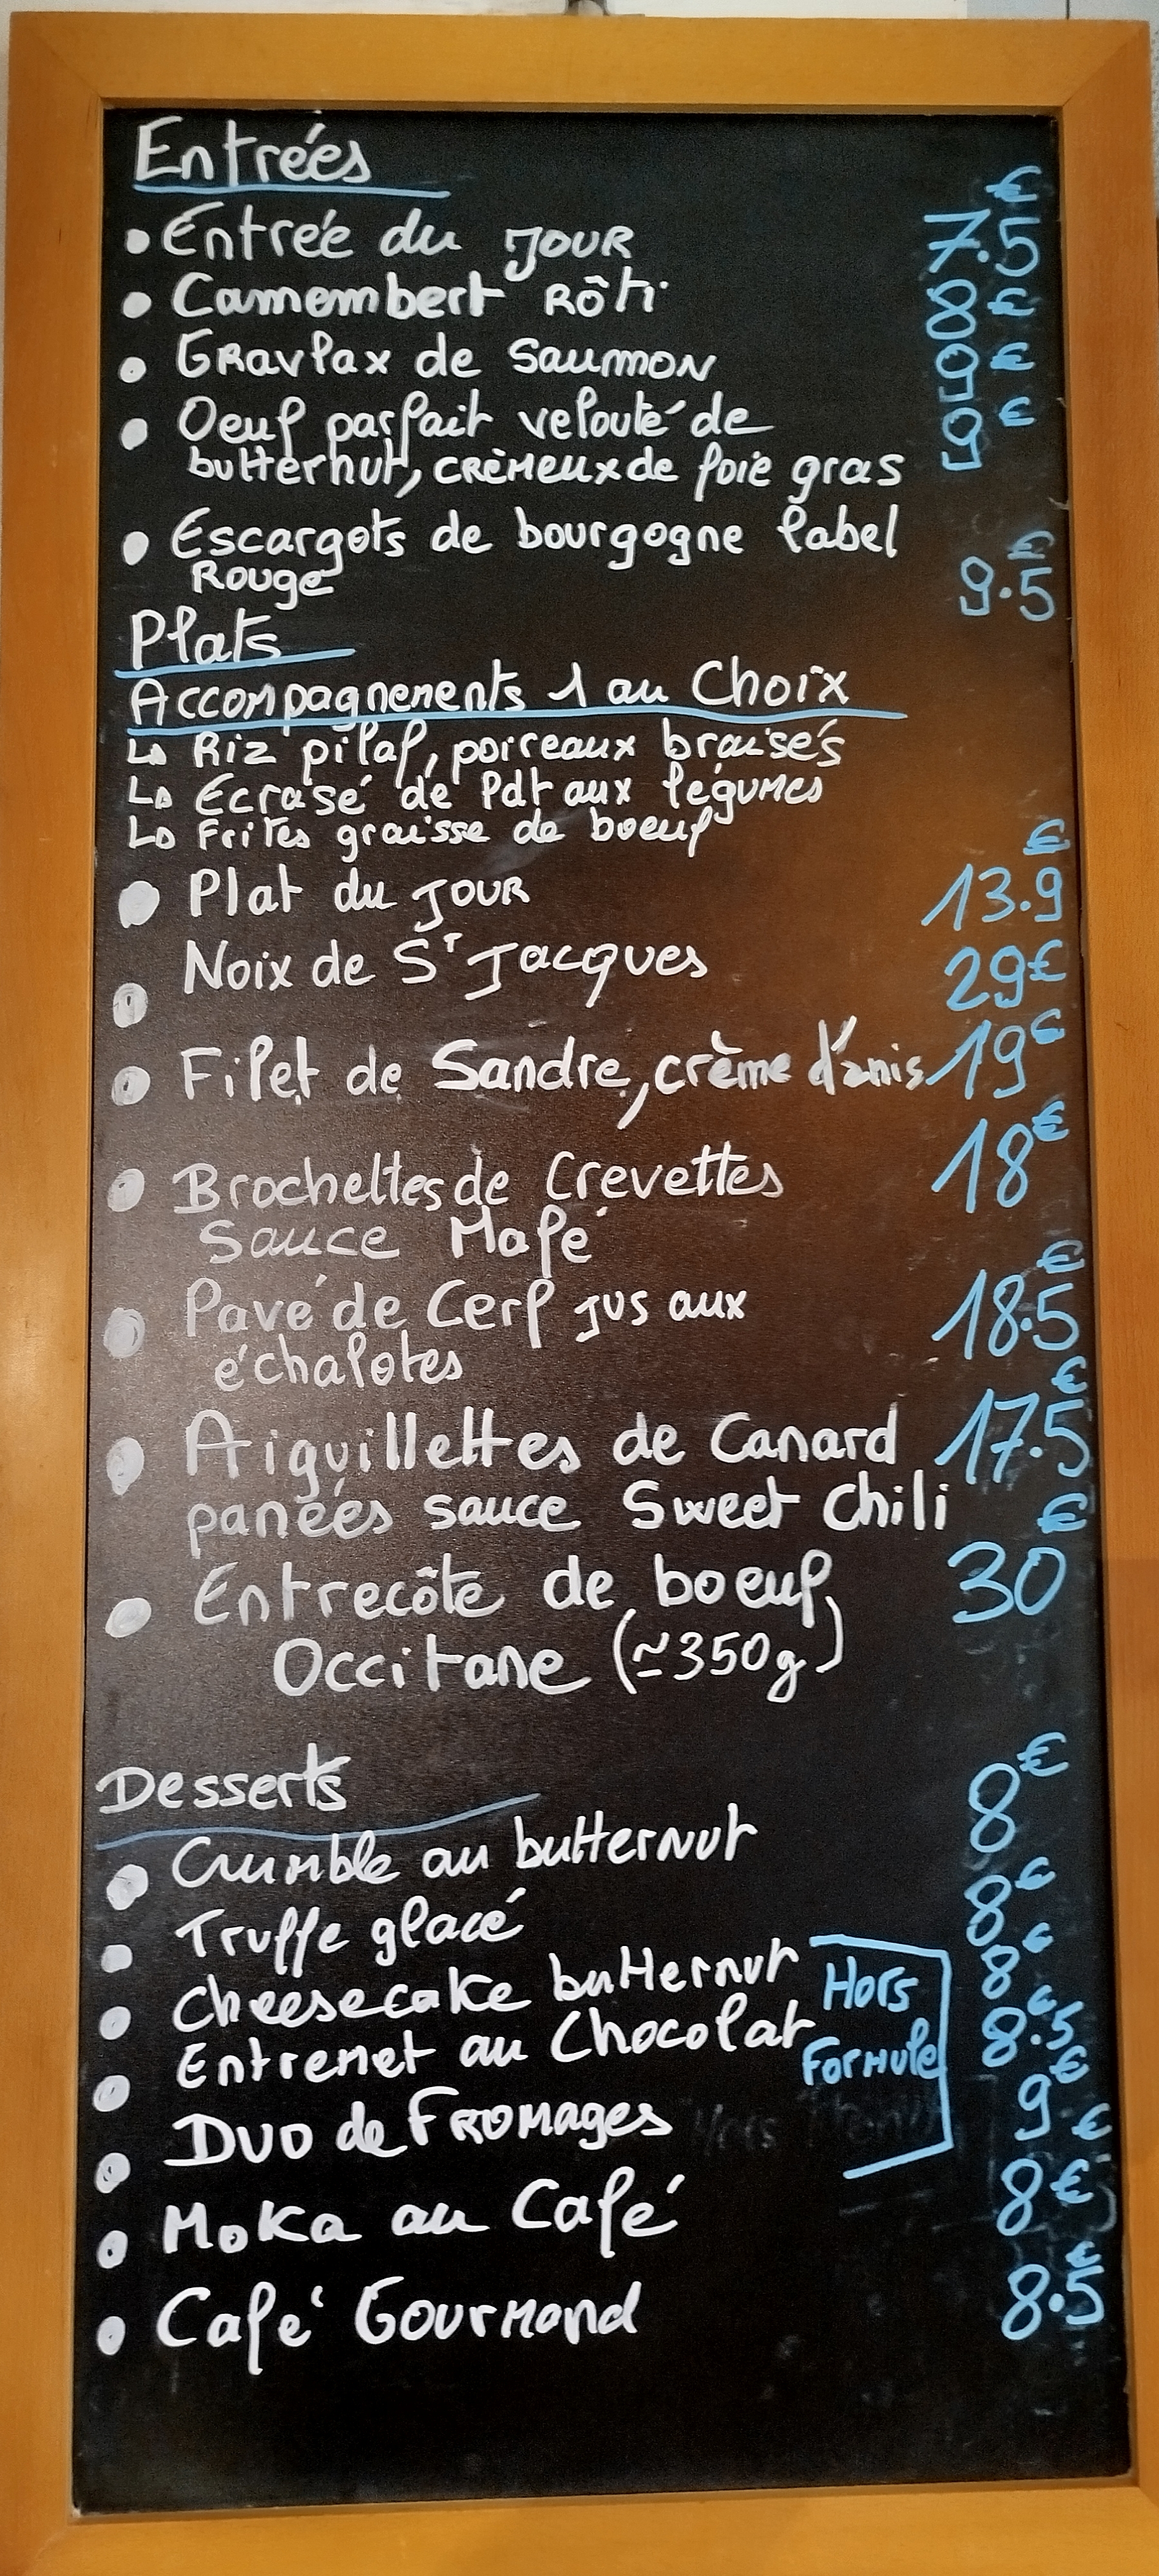 Entrées
• Entrée du JOUR 7.5€
• Camembert Rôti 8€
• Gravlax de Saumon 9€
• Oeuf parfait velouté de 9€
butternut, crèmeux de foie gras
• Escargots de bourgogne label
Rouge 9.5€
Plats
Accompagnements 1 au Choix
↳ Riz pilaf, poireaux braisés
↳ Ecrasé de Pdt aux légumes
↳ Frites graisse de boeuf
• Plat du JOUR 13.9€
• Noix de St Jacques 29€
• Filet de Sandre, crème d'anis 19€
• Brochettes de Crevettes 18€
Sauce Mafé
• Pavé de Cerf jus aux 18.5€
échalotes
• Aiguillettes de Canard 17.5€
panées sauce Sweet Chili
• Entrecôte de boeuf 30€
Occitane (≃350g)
Desserts
• Crumble au butternut 8€
• Truffe glacé 8€
• Cheesecake butternut Hors 8€
• Entremet au Chocolat Formule 8.5€
• Duo de Fromages 9€
• Moka au Café 8€
• Café Gourmand 8.5€